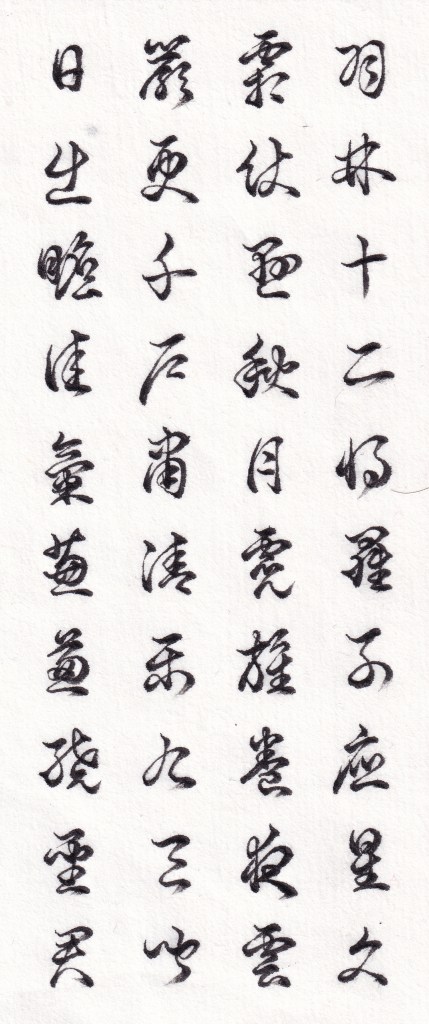 羽林十二将羅列應星文
霜仗懸秋月霓旌卷夜雲
嚴更千戶肅清樂九天聞
日出瞻佳氣蔥蔥繞聖君